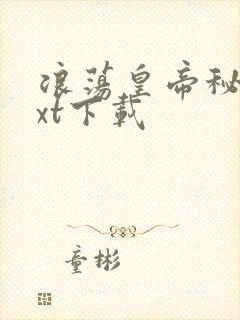 浪荡皇帝秘
xt下载
童彬